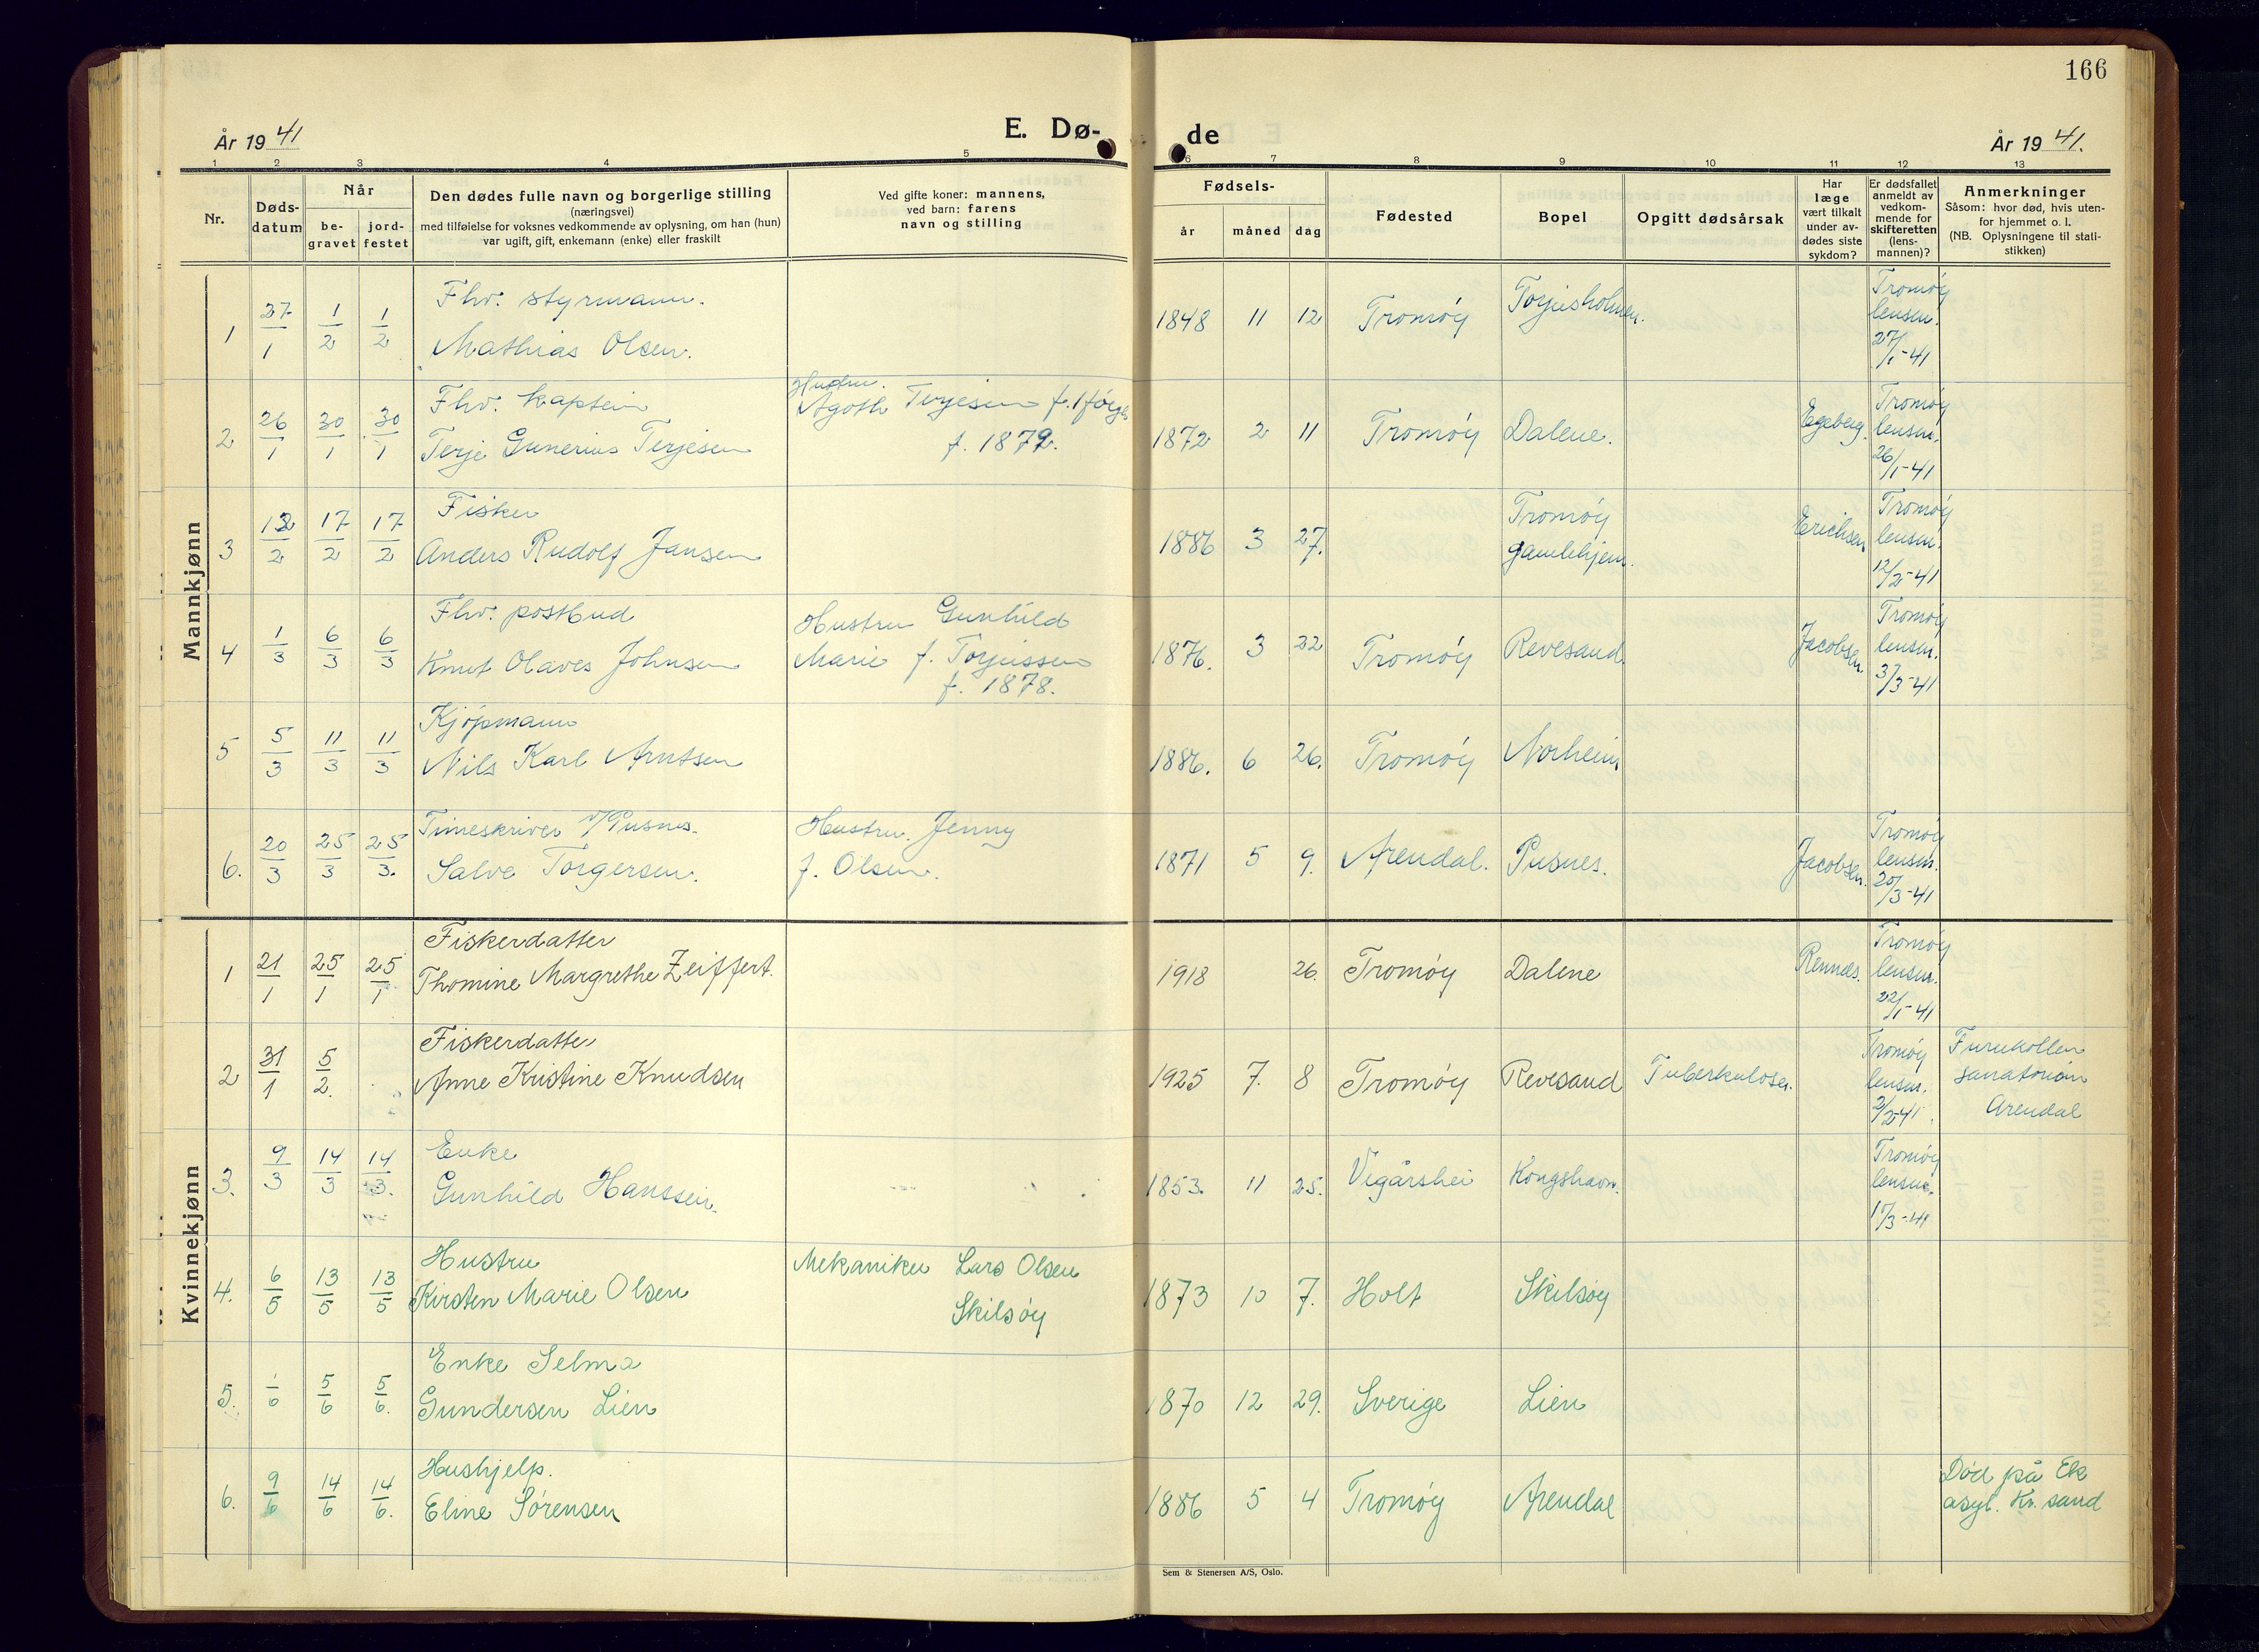 166
År 1941
E. Dø-
de
År 1941.
1 2 3 4 5 6 7 8 9 10 11 12 13
Nr.
Døds-
datum
Når
be-
gravet
jord-
festet
Den dødes fulle navn og borgerlige stilling
(næringsvei)
med tilføielse for voksnes vedkommende av oplysning, om han (hun)
var ugift, gift, enkemann (enke) eller fraskilt
Ved gifte koner: mannens,
ved barn: farens
navn og stilling
Fødsels-
år måned dag
Fødested
Bopel
Opgitt dødsårsak
Har
læge
vært tilkalt
under av-
dødes siste
sykdom?
Er dødsfallet
anmeldt av
vedkom-
mende for
skifteretten
(lens-
mannen)?
Anmerkninger
Såsom: hvor død, hvis uten-
for hjemmet o. l.
(NB. Oplysningene til stati-
stikken)
Mannkjønn
1 27/1 1/2 1/2
Fhv. styrmann.
Mathias Olsen.
1848 11 12 Tromøy Torjusholmen.
Tromøy
lensm.
27/1-41
2 26/1 30/1 30/1
Fhv. kaptein
Terje Gunerius Terjesen
Hustru.
Agoth Terjesen f.
f. 1872.
1872 2 11 Tromøy Dalene. Egeberg.
Tromøy
lensm.
26/1-41
3 12/2 17/2 17/2
Fisker
Anders Rudolf Jansen
1886 3 27.
Tromøy
gamlehjem.
Erichsen
Tromøy
lensm.
12/2-41
4 1/3 6/3 6/3
Fhv. postbud
Knut Olaves Johnsen
Hustru Gunhild
Marie f. Torjussen
f. 1878.
1876. 3 22 Tromøy Revesand. Jacobsen.
Tromøy
lensm.
3/3-41
5 5/3 11/3 11/3
Kjøpmann
Nils Karl Arntsen
1886. 6 26. Tromøy Norheim
6. 20/3 25/3 25/3.
Timeskriver v/Pusnes.
Salve Torgersen.
Hustru. Jenny
f. Olsen.
1871 5 9. Arendal. Pusnes. Jacobsen.
Tromøy
lensm.
20/3-41
Kvinnekjønn
1 21/1 25/1 25/1
Fiskerdatter
Thomine Margrethe Zeiffert.
1918 26. Tromøy Dalene Rennes.
Tromøy
lensm.
22/1-41
2 31/1 5/2.
Fiskerdatter
Anne Kristine Knudsen
1925 7. 8 Tromøy Revesand Tuberkulose.
Tromøy
lensm.
2/2-41.
Furukollen
sanatorium
Arendal
3. 9/3 14/3 14/3.
Enke
Gunhild Hanssen.
1853. 11 25. Vigårshei Kongshavn.
Tromøy
lensm.
/3-41
4. 6/5 13/5 13/5
Hustru
Kirsten Marie Olsen
Mekaniker Lars Olsen
Skilsøy
1873 10 7. Holt Skilsøy
5. 1/6 5/6 5/6.
Enke Selma
Gundersen Lien
1870 12 29. Sverige Lien
6. 9/6 14/6 14/6.
Hushjelp.
Eline Sørensen
1886 5 4 Tromøy Arendal
Død på Ek
asyl. Kr. sand
Sem & Stenersen A/S, Oslo.